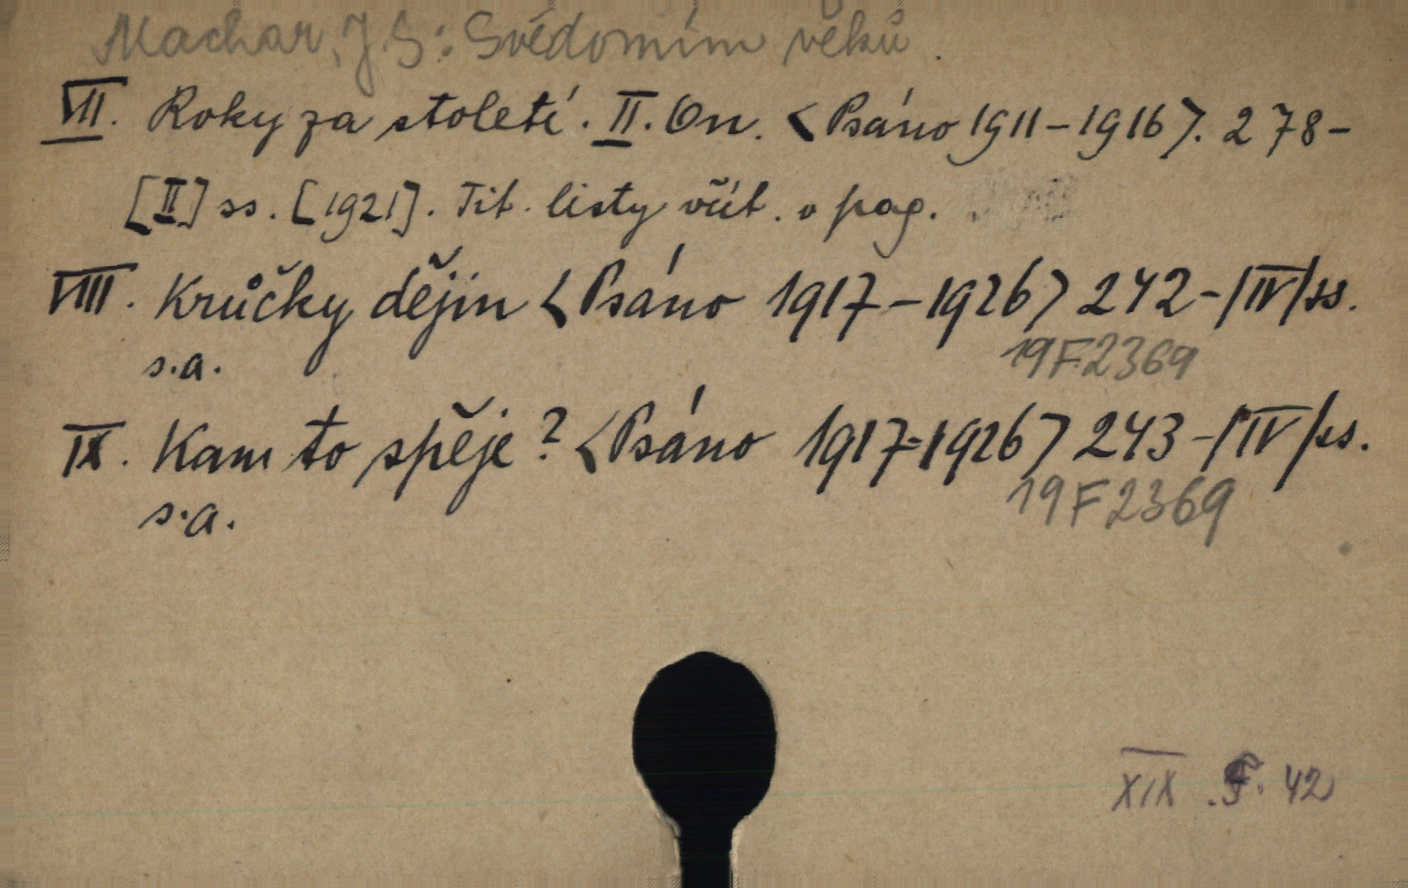 Machar, J. S: Svědomím věků.
VII. Roky za století. II. On. <Psáno 1911-1916>. 278-
[II] ss. [1921]. Tit. listy včít. v pag.
VIII. Krůčky dějin <Psáno 1917-1926> 242-/IV/ss.
s.a.
19F2369
IX. Kam to spěje? <Psáno 1917-1926> 243-/IV/ss.
s.a.
19F2369
XIX .F. 42